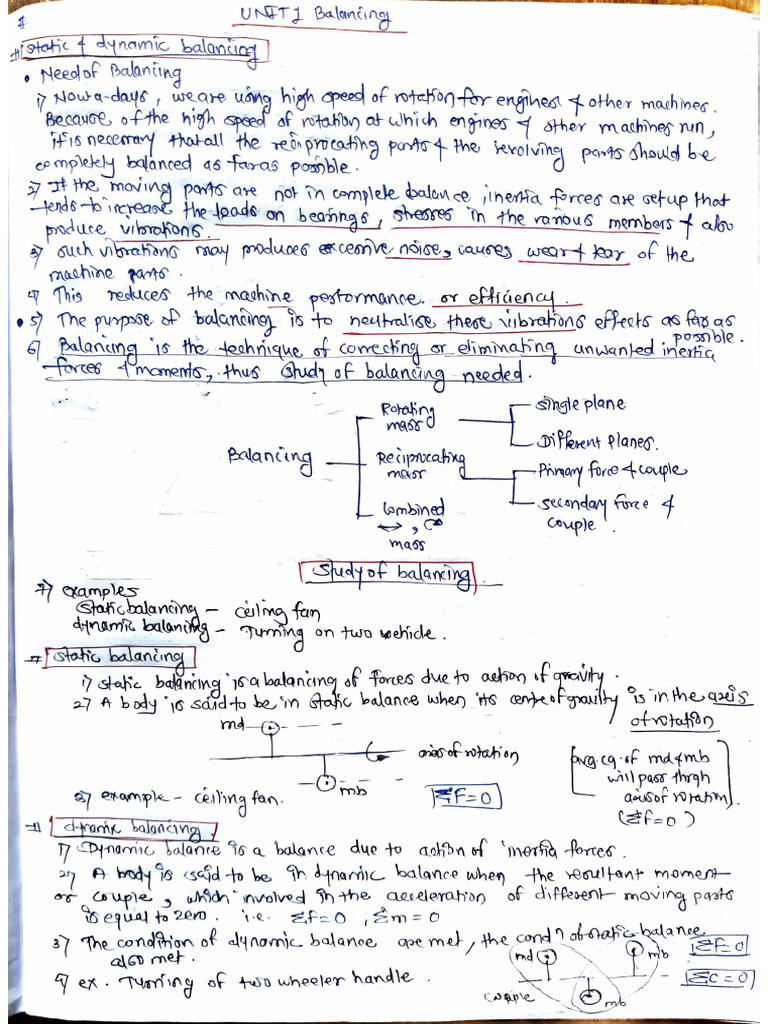 UNIT 1 Balancing
# static & dynamic balancing
• Need of Balancing
1) Now a-days, we are using high speed of rotation for engines & other machines.
Because of the high speed of rotation at which engines & other machines run,
it is necessary that all the reciprocating parts & the revolving parts should be
completely balanced as far as possible.
2) If the moving parts are not in complete balance, inertia forces are setup that
tends to increase the loads on bearings, stresses in the various members & also
produce vibrations.
3) such vibrations may produces excessive noise, causes wear & tear of the
machine parts.
4) This reduces the machine performance or efficiency.
• 5) The purpose of balancing is to neutralise these vibrations effects as far as
possible.
6) Balancing is the technique of correcting or eliminating unwanted inertia
forces & moments, thus study of balancing needed.
Balancing
Rotating
mass
single plane
Different planes.
Reciprocating
mass
Primary force & couple
secondary force &
couple
Combined
mass
Study of balancing
7) examples
static balancing - ceiling fan
dynamic balancing - Turning on two vehicle.
# static balancing
1) static balancing is a balancing of forces due to action of gravity.
2) A body is said to be in static balance when its centre of gravity is in the axis
of rotation
md
axis of rotation
mb
avg. cg. of md & mb
will pass thrgh
axis of rotation
(Σf=0)
3) example - ceiling fan.
Σf=0
# dynamic balancing
1) Dynamic balance is a balance due to action of inertia forces.
2) A body is said to be in dynamic balance when the resultant moment
or couple, which involved in the acceleration of different moving parts
is equal to zero. i.e. Σf=0, Σm=0
3) The condition of dynamic balance are met, the condn of static balance
also met.
md
mb
Σf=0
4) ex. Turning of two wheeler handle.
couple
mb
Σc=0